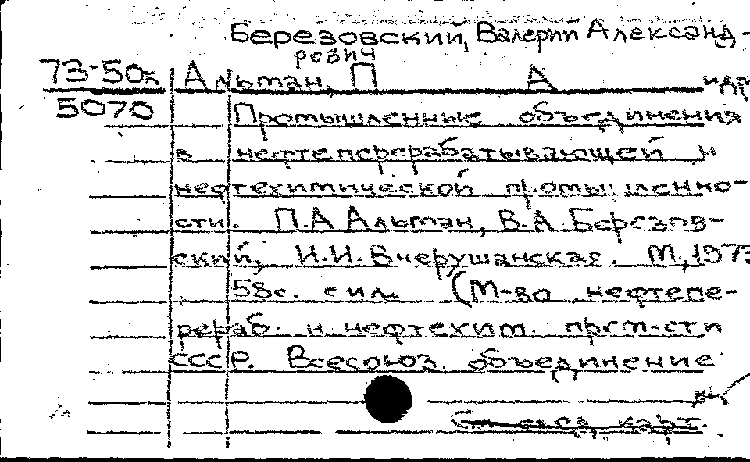 Березовский, Валерий Александ-
рович
73-50к Альтман, П А и др
5070 Промышленные объединения
в нефтеперерабатывающей и
нефтехимической промышленно-
сти. П.А Альтман, В.А. Березов-
ский, И.И. Вчерушанская. М, 1973
58с. с ил. (М-во нефтепе-
рераб. и нефтехим. пром-сти
СССР. Всесоюз. объединение
карт.